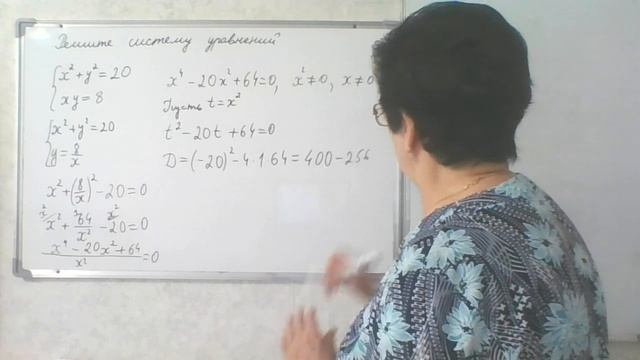 Решите систему уравнений
{x² + y² = 20
xy = 8
{x² + y² = 20
y = 8/x
x² + (8/x)² − 20 = 0
x² + 64/x² − 20 = 0
(x⁴ − 20x² + 64)/x² = 0
x⁴ − 20x² + 64 = 0, x² ≠ 0, x ≠ 0
Пусть t = x²
t² − 20t + 64 = 0
D = (−20)² − 4 · 1 · 64 = 400 − 256